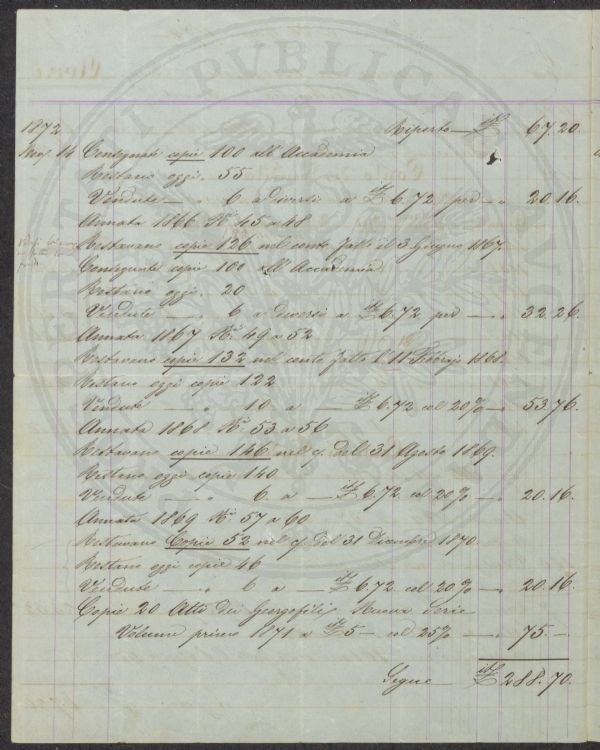 1872 Riporto — it£ 67.20.
Mag. 14 Consegnati copie 100 all'Accademia
Restano oggi. 55
Vendute — „ 6 a diversi a it£ 6.72 per — „ 20.16.
Annata 1866 N.i 45 a 48
Restavano copie 126 nel conto fatto il 3 Giugno 1867.
Consegnate copie 100 all'Accademia
Restano oggi. 20
Vendute — „ 6 a diversi a it£ 6.72 per — „ 32.26.
Annata 1867 N.i 49 a 52
Restavano copie 132 nel conto fatto l'11 Febbrajo 1868.
Restano oggi copie 122
Vendute — „ 10 a — it£ 6.72 col 20% — „ 53.76.
Annata 1868 N.i 53 a 56
Restavano copie 146 nel c/ del 31 Agosto 1869.
Restano oggi copie 140
Vendute — „ 6 a — it£ 6.72 col 20% — „ 20.16.
Annata 1869 N.i 57 a 60
Restavano Copie 52 nel c/ del 31 Dicembre 1870.
Restano oggi copie 46
Vendute — „ 6 a — it£ 6.72 col 20% — „ 20.16.
Copie 20 Atti dei Georgofili, Nuova Serie
Volume primo 1871 a it£ 5 — col 25% — „ 75. —
Segue it£ 288.70.